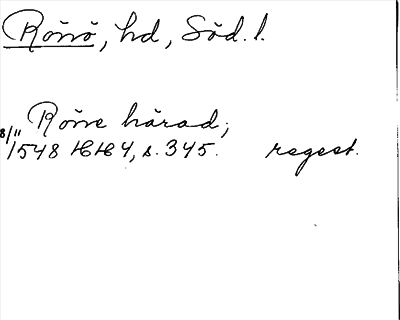 Rönö, hd, Söd. l.
Röne härad;
8/11 1548 HH 4, s. 345. regest.